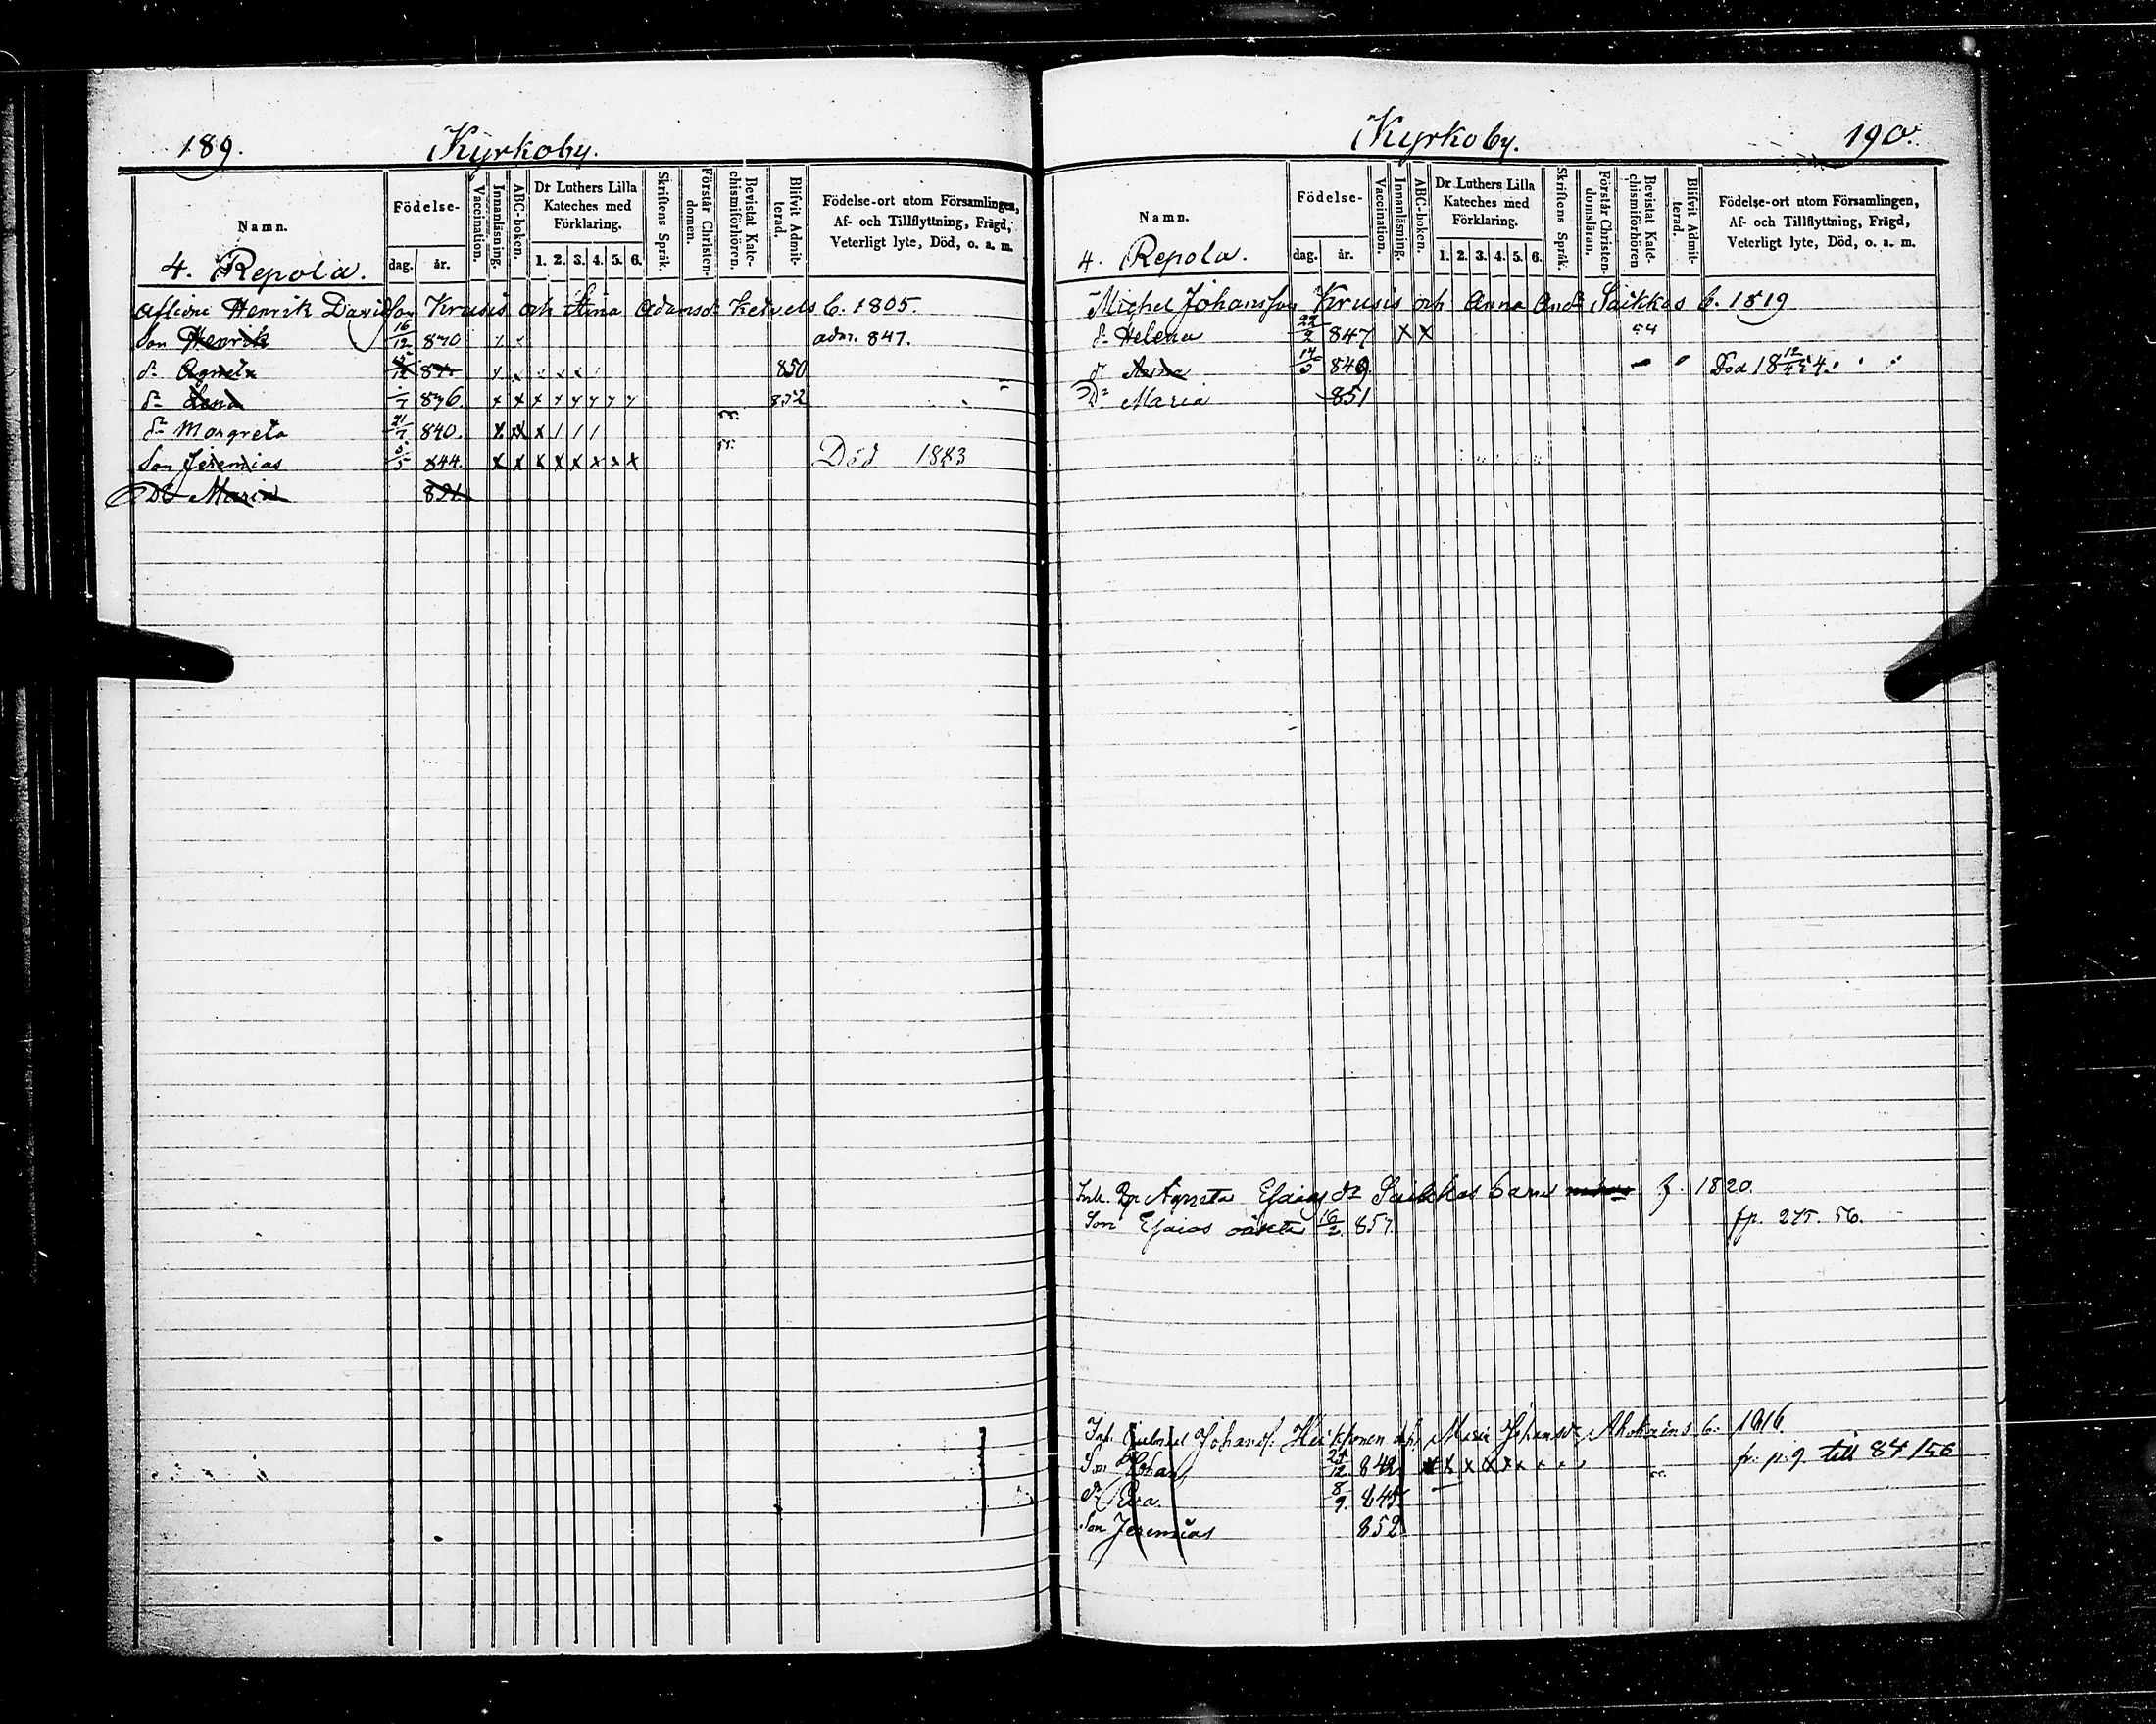 189. Kyrkoby.
Namn. Födelse- dag. år. Vaccination. Innanläsning. ABC-boken. Dr Luthers Lilla Kateches med Förklaring. 1. 2. 3. 4. 5. 6. Skriftens Språk. Förstår Christendomen. Bevistat Katechismiförhören. Blifvit Admitterad. Födelse-ort utom Församlingen, Af- och Tillflyttning, Frägd, Veterligt lyte, Död, o. a. m.
4. Repola.
Aflidne Henrik Davidson Krusis och Stina Adamsdr b. 1805.
Son Henrik 16/12 830 adm. 847.
dr Agneta 850
dr Lena 836. x x x y y y y y 852
dr Margreta 21/7 840. x x x / / /
Son Jeremias 844. x x x x x x x x Död 1883
Dr Maria 821
Kyrkoby. 190.
Namn. Födelse- dag. år. Vaccination. Innanläsning. ABC-boken. Dr Luthers Lilla Kateches med Förklaring. 1. 2. 3. 4. 5. 6. Skriftens Språk. Förstår Christendomsläran. Bevistat Katechismiförhören Blifvit Admitterad. Födelse-ort utom Församlingen, Af- och Tillflyttning, Frägd, Veterligt lyte, Död, o. a. m.
4. Repola.
Michel Johansson Krusis och Anna Andr Saikkos b. 1819
dr Helena 22/2 847 x x 54
dr Anna 14/5 849. Död
Dr Maria 851
Agneta Esaias dr Saikkos barn 1820.
Son Esaias oäkta 16/2. 857. fp. 275. 56.
Inh. Johanss: Heikkonen Maria Johansdr b. 1816.
Son Johan 842 x x x x fr. p. 9. till 84/56
dr Eva 8/9. 845
Son Jeremias 852